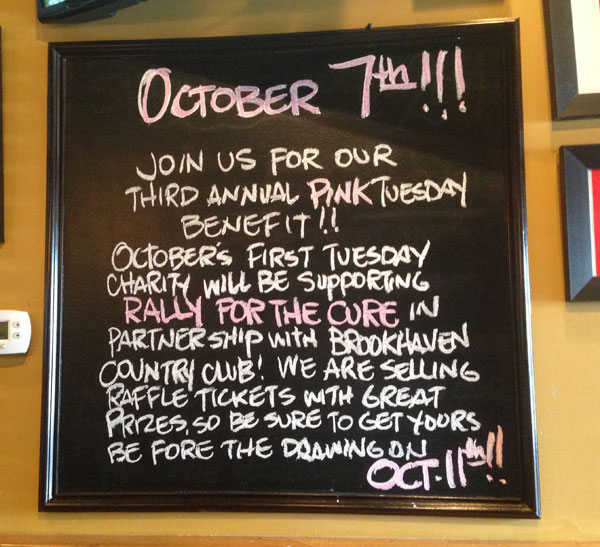 OCTOBER 7th!!!
JOIN US FOR OUR
THIRD ANNUAL PINK TUESDAY
BENEFIT!!
OCTOBER'S FIRST TUESDAY
CHARITY WILL BE SUPPORTING
RALLY FOR THE CURE IN
PARTNERSHIP WITH BROOKHAVEN
COUNTRY CLUB! WE ARE SELLING
RAFFLE TICKETS WITH GREAT
PRIZES, SO BE SURE TO GET YOURS
BE FORE THE DRAWING ON
OCT. 11th!!